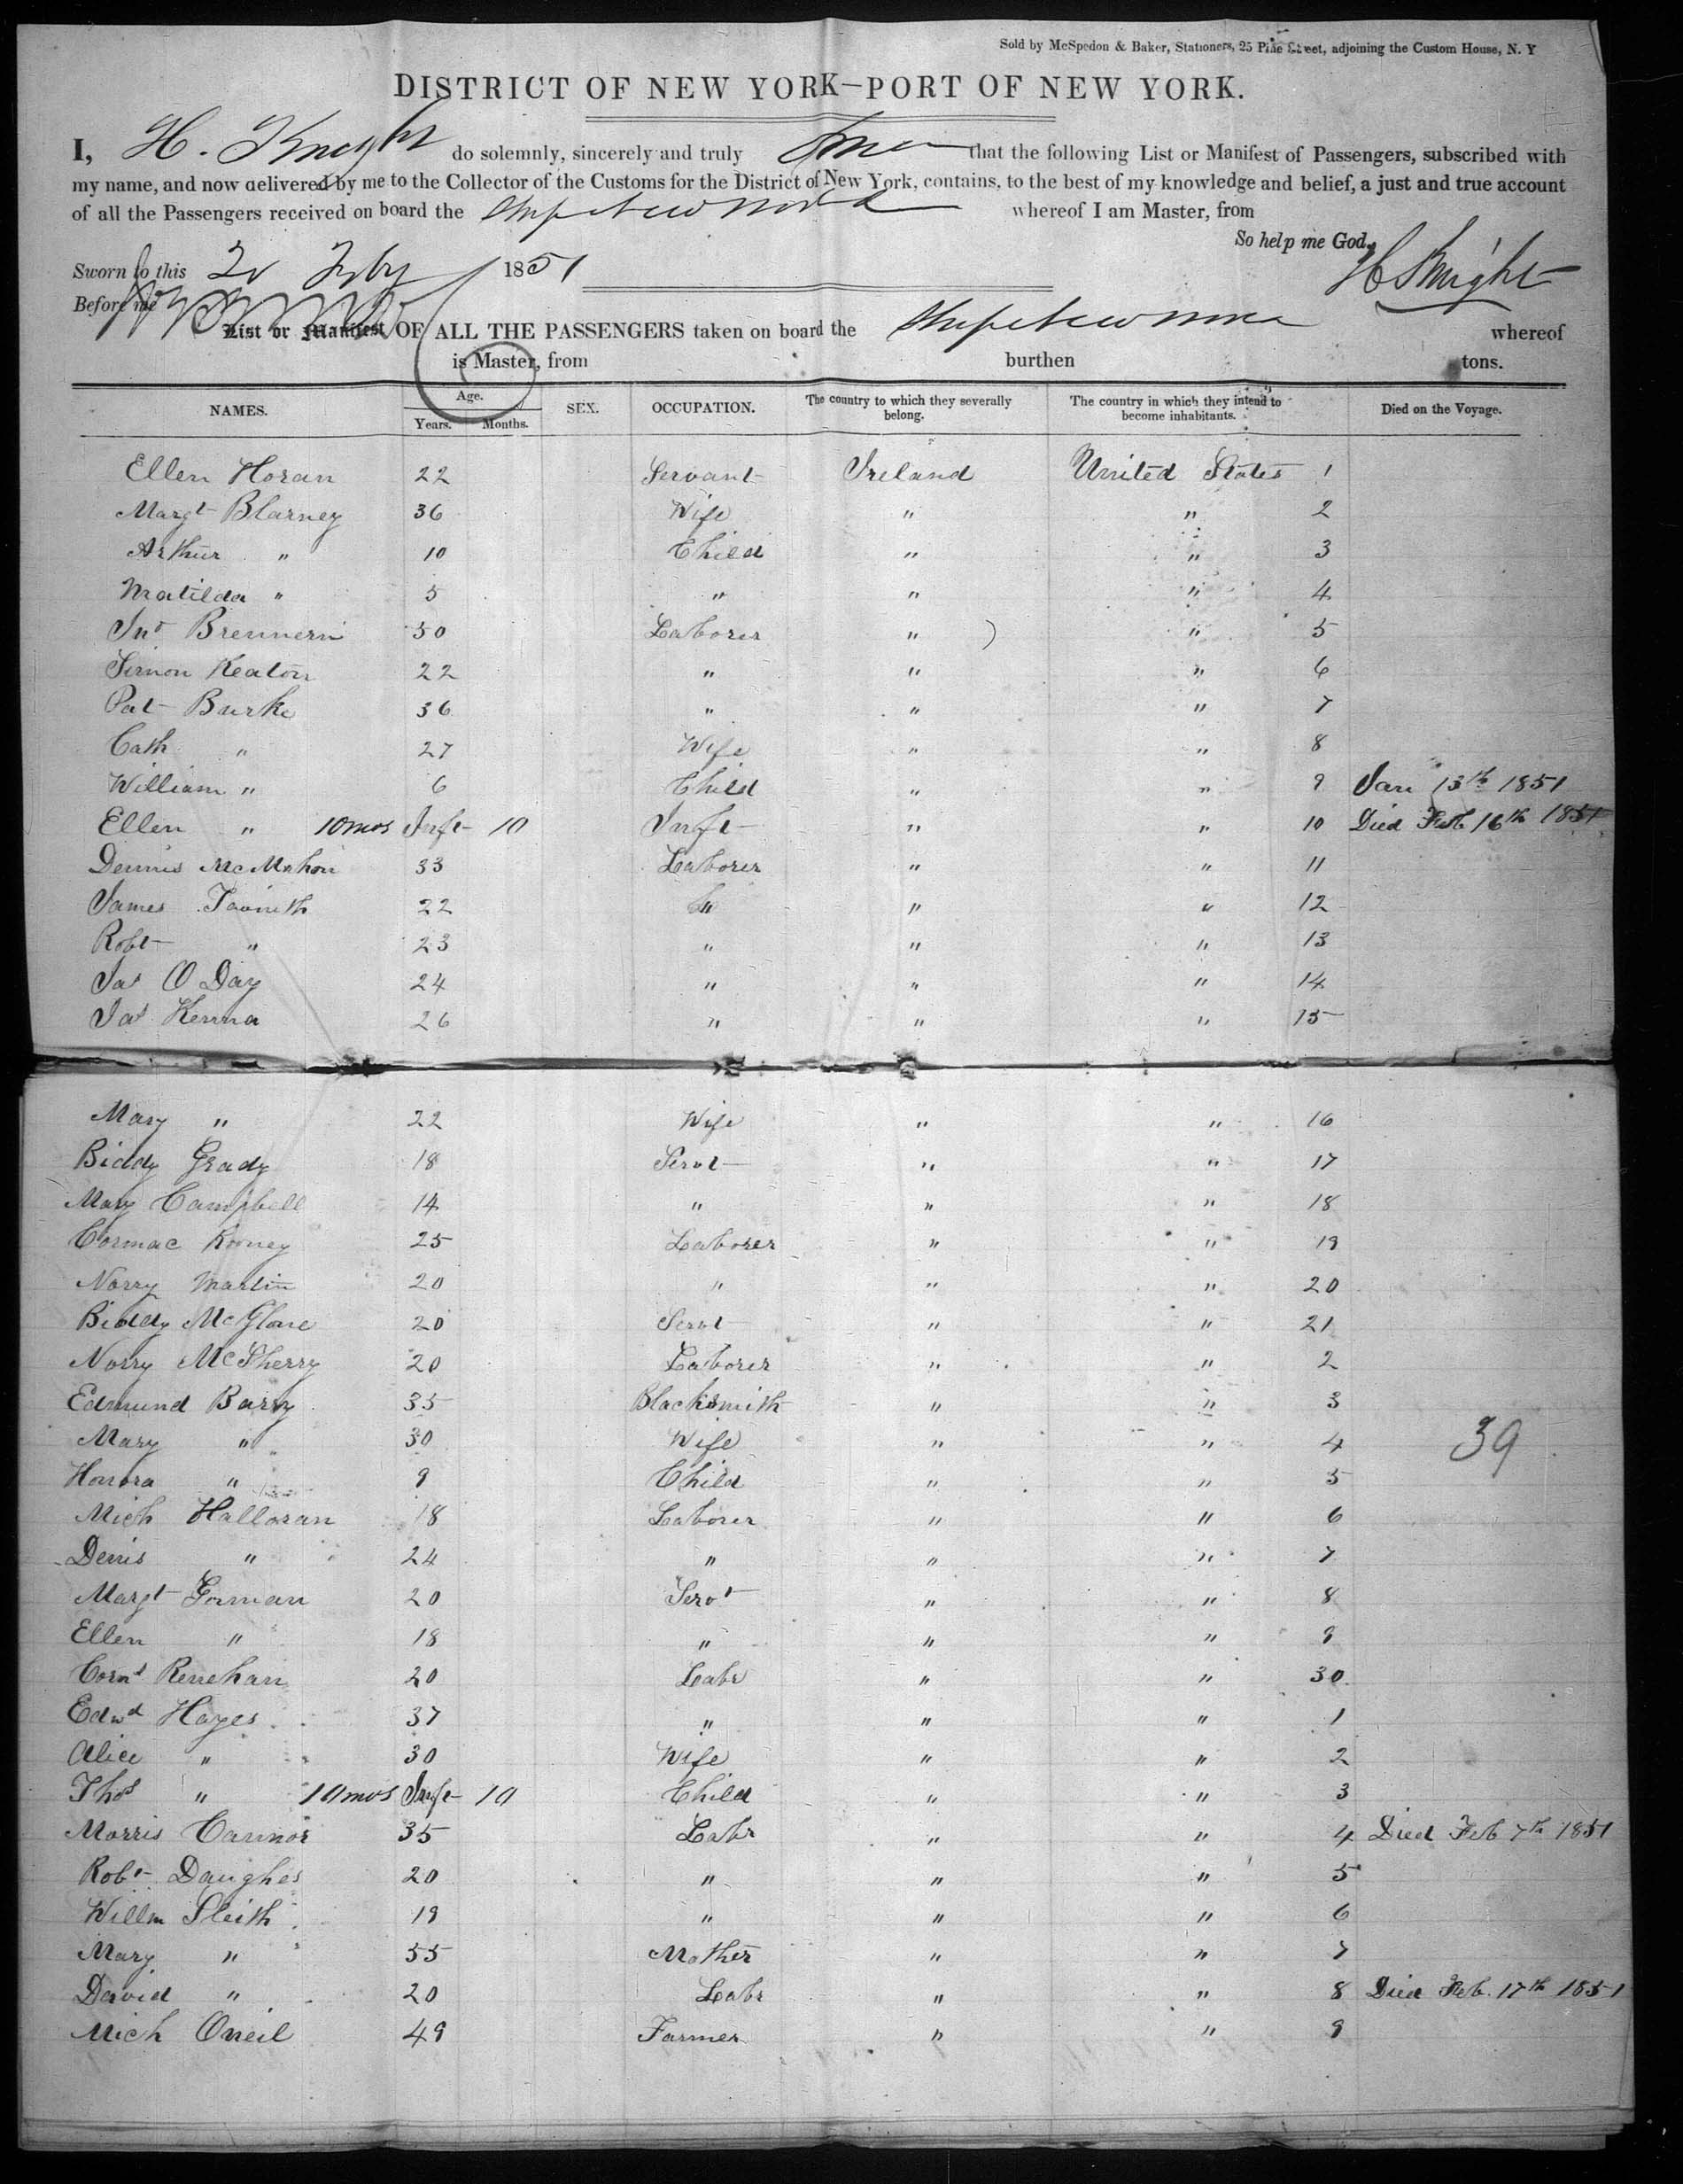 Sold by McSpedon & Baker, Stationers, 25 Pine Street, adjoining the Custom House, N. Y
DISTRICT OF NEW YORK—PORT OF NEW YORK.
I, H. Knight do solemnly, sincerely and truly that the following List or Manifest of Passengers, subscribed with
my name, and now delivered by me to the Collector of the Customs for the District of New York, contains, to the best of my knowledge and belief, a just and true account
of all the Passengers received on board the Ship New World whereof I am Master, from
So help me God.
H Knight
Sworn to this 20 Feby 1851
Before me
List or Manifest OF ALL THE PASSENGERS taken on board the Ship New whereof
is Master, from burthen tons.
NAMES. Age. Years. Months. SEX. OCCUPATION. The country to which they severally belong. The country in which they intend to become inhabitants. Died on the Voyage.
Ellen Horan 22 Servant Ireland United States 1
Margt Blarney 36 Wife " " 2
Arthur " 10 Child " " 3
Matilda " 5 " " " 4
Jno Brennern 50 Laborer " " 5
Simon Keaton 22 " " " 6
Pat Burke 36 " " " 7
Cath " 27 Wife " " 8
William " 6 Child " " 9 Jan 13th 1851
Ellen " 10mos Inft 10 Inft " " 10 Died Feb 16th 1851
Dennis McMahon 33 Laborer " " 11
James 22 " " " 12
Robt " 23 " " " 13
Jas O Day 24 " " " 14
Jas Kenna 26 " " " 15
Mary " 22 Wife " " 16
Biddy Grady 18 Servt " " 17
Mary Campbell 14 " " " 18
Cormac Rooney 25 Laborer " " 19
Norry Martin 20 " " " 20
Biddy McGlone 20 Servt " " 21
Norry McSherry 20 Laborer " " 2
Edmund Barry 35 Blacksmith " " 3
39
Mary " 30 Wife " " 4
Honora " 9 Child " " 5
Mich Halloran 18 Laborer " " 6
Denis " 24 " " " 7
Margt Gorman 20 Servt " " 8
Ellen " 18 " " " 9
Corns Renehan 20 Labr " " 30
Edwd Hayes 37 " " " 1
Alice " 30 Wife " " 2
Thos " 10mos Inft 10 Child " " 3
Morris Connor 35 Labr " " 4 Died Feb 7th 1851
Robt Daughes 20 " " " 5
Willm Sleith 19 " " " 6
Mary " 55 Mother " " 7
David " 20 Labr " " 8 Died Feb. 17th 1851
Mich Oneil 49 Farmer " " 9